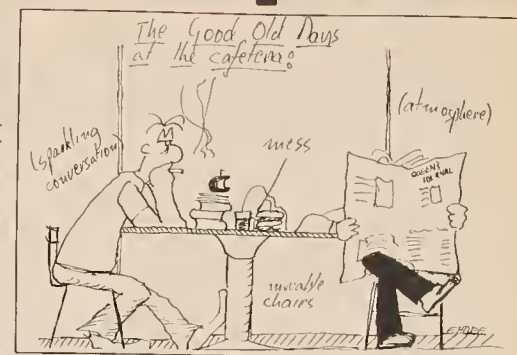 The Good Old Days
at the cafeteria:
(sparkling
conversation)
(atmosphere)
mess
QUEEN'S
JOURNAL
movable
chairs